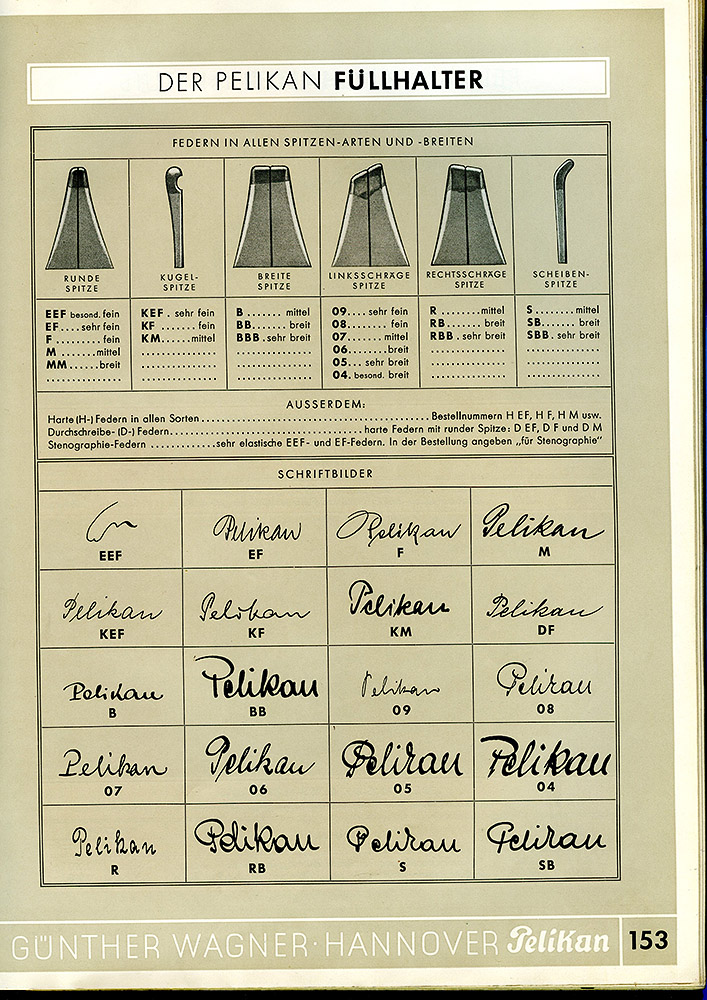 DER PELIKAN FÜLLHALTER
FEDERN IN ALLEN SPITZEN-ARTEN UND -BREITEN
RUNDE SPITZE
EEF besond. fein
EF.... sehr fein
F .......... fein
M ....... mittel
MM ...... breit
KUGEL-SPITZE
KEF . sehr fein
KF ....... fein
KM...... mittel
BREITE SPITZE
B ....... mittel
BB....... breit
BBB . sehr breit
LINKSSCHRÄGE SPITZE
09.... sehr fein
08........ fein
07....... mittel
06........ breit
05... sehr breit
04. besond. breit
RECHTSSCHRÄGE SPITZE
R ........ mittel
RB....... breit
RBB . sehr breit
SCHEIBEN-SPITZE
S........ mittel
SB....... breit
SBB . sehr breit
AUSSERDEM:
Harte (H-) Federn in allen Sorten ........ Bestellnummern H EF, H F, H M usw.
Durchschreibe- (D-) Federn........ harte Federn mit runder Spitze: D EF, D F und D M
Stenographie-Federn ........ sehr elastische EEF- und EF-Federn. In der Bestellung angeben „für Stenographie"
SCHRIFTBILDER
EEF
Pelikan EF
Pelikan F
Pelikan M
Pelikan KEF
Pelikan KF
Pelikan KM
Pelikan DF
Pelikan B
Pelikan BB
Pelikan 09
Pelikan 08
Pelikan 07
Pelikan 06
Pelikan 05
Pelikan 04
Pelikan R
Pelikan RB
Pelikan S
Pelikan SB
GÜNTHER WAGNER · HANNOVER Pelikan 153